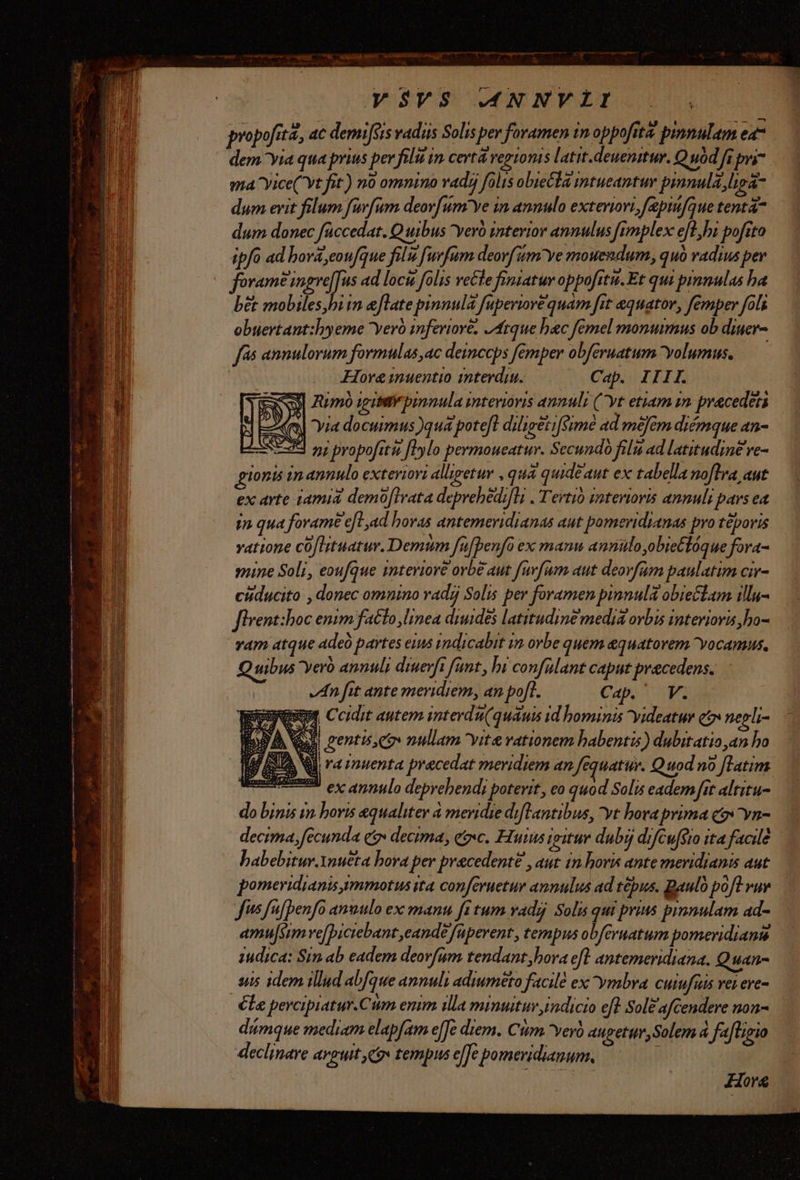 VSVS ANNVLI
propositã, ac demissis radiis Solis per foramen in oppositã pinnulam ea-
dem via qua prius per filũ in certã regionis latit. deuenitur. Quòd si pri-
ma vice (vt fit) nõ omnino radij solis obiectã intueantur pinnulã, ligã-
dum erit filum sursum deorsúmve in annulo exteriori, sæpiúsque tentã-
dum donec succedat. Quibus verò interior annulus simplex est, hi posito
ipso ad horã, eousque filũ sursum deorsúmve mouendum, quò radius per
foramẽ ingressus ad locũ solis rectè finiatur oppositũ. Et qui pinnulas ha
bẽt mobiles, hi in æstate pinnulã superiorẽ quàm sit æquator, semper soli
obuertant: hyeme verò inferiorẽ. Atque hæc semel monuimus ob diuer-
sas annulorum formulas, ac deinceps semper obseruatum volumus.
Horæ inuentio interdiu. Cap. IIII.
Rimò igitur pinnula interioris annuli (vt etiam in præcedẽti
via docuimus) quã potest diligẽtissimè ad mẽsem diémque an-
ni propositũ stylo permoueatur. Secundò filũ ad latitudinẽ re-
gionis in annulo exteriori alligetur, quã quidẽ aut ex tabella nostra, aut
ex arte iamiã demõstrata deprehẽdisti. Tertiò interioris annuli pars ea
in qua foramẽ est, ad horas antemeridianas aut pomeridianas pro tẽporis
ratione cõstituatur. Demùm suspenso ex manu annulo, obiectóque fora-
mine Soli, eousque interiorẽ orbẽ aut sursum aut deorsum paulatim cir-
cũducito, donec omnino radij Solis per foramen pinnulã obiectam illu-
strent: hoc enim facto, linea diuidẽs latitudinẽ mediã orbis interioris, ho-
ram atque adeò partes eius indicabit in orbe quem æquatorem vocamus.
Quibus verò annuli diuersi sunt, hi consulant caput præcedens.
An sit ante meridiem, an post. Cap. V.
Ccidit autem interdũ (quãuis id hominis videatur & negli-
gentis, & nullam vitæ rationem habentis) dubitatio, an ho
ra inuenta præcedat meridiem an sequatur. Quod nõ statim
ex annulo deprehendi poterit, eo quod Solis eadem sit altitu-
do binis in horis æqualiter à meridie distantibus, vt hora prima & vn-
decima, secunda & decima, &c. Huius igitur dubij discussio ita facilè
habebitur. Inuẽta hora per præcedentẽ, aut in horis ante meridianis aut
pomeridianis, immotus ita conseruetur annulus ad tẽpus. Paulò pòst rur
sus suspenso annulo ex manu si tum radij Solis qui prius pinnulam ad-
amussim respiciebant, eandẽ superent, tempus obseruatum pomeridianũ
iudica: Sin ab eadem deorsum tendant, hora est antemeridiana. Quan-
uis idem illud absque annuli adiumẽto facilè ex vmbra cuiusuis rei ere-
ctæ percipiatur. Cùm enim illa minuitur, indicio est Solẽ ascendere non-
dúmque mediam elapsam esse diem. Cùm verò augetur, Solem à fastigio
declinare arguit, & tempus esse pomeridianum.
Horæ